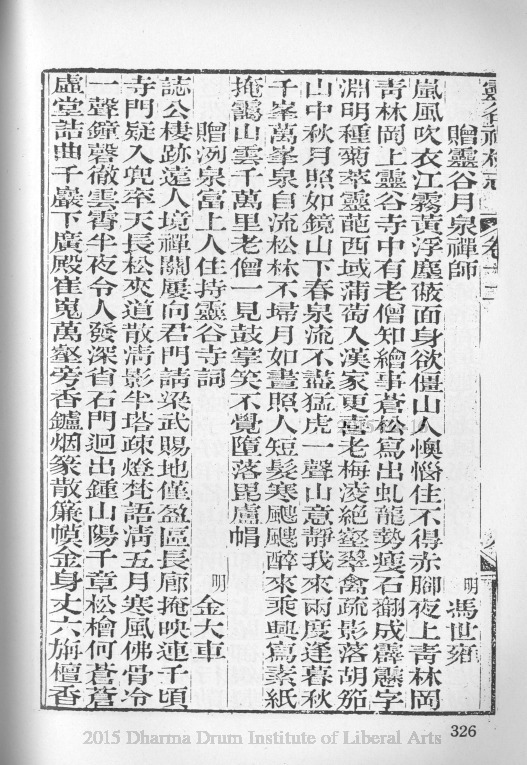 靈谷禪林志 卷十三
贈靈谷月泉禪師
明 馮世雍
嵐風吹衣江霧黃浮塵蔽面身欲僵山人懊惱住不得赤腳夜上青林岡
青林岡上靈谷寺中有老僧知繪事蒼松寫出虬龍勢瘦石翻成霹靂字
淵明種菊萃靈葩西域蒲萄入漢家更喜老梅凌絕壑翠禽疏影落胡笳
山中秋月照如鏡山下春泉流不盡猛虎一聲山意靜我來兩度逢春秋
千峯萬峯泉自流松林不埽月如晝照人短髮寒颼颼醉來乘興寫素紙
掩靄山雲千萬里老僧一見鼓掌笑不覺墮落毘盧帽
贈洌泉當上人住持靈谷寺詞
明 金大車
誌公棲跡遠人境禪關屢向君門請梁武賜地僅盈區長廊掩映連千頃
寺門疑入兜率天長松夾道散清影半塔疎燈梵語清五月寒風佛骨冷
一聲鐘磬徹雲霄半夜令人發深省石門迴出鍾山陽千章松檜何蒼蒼
虛堂詰曲千巖下廣殿崔嵬萬壑旁香鑪烟篆散簾幙金身丈六旃檀香
326
2015 Dharma Drum Institute of Liberal Arts